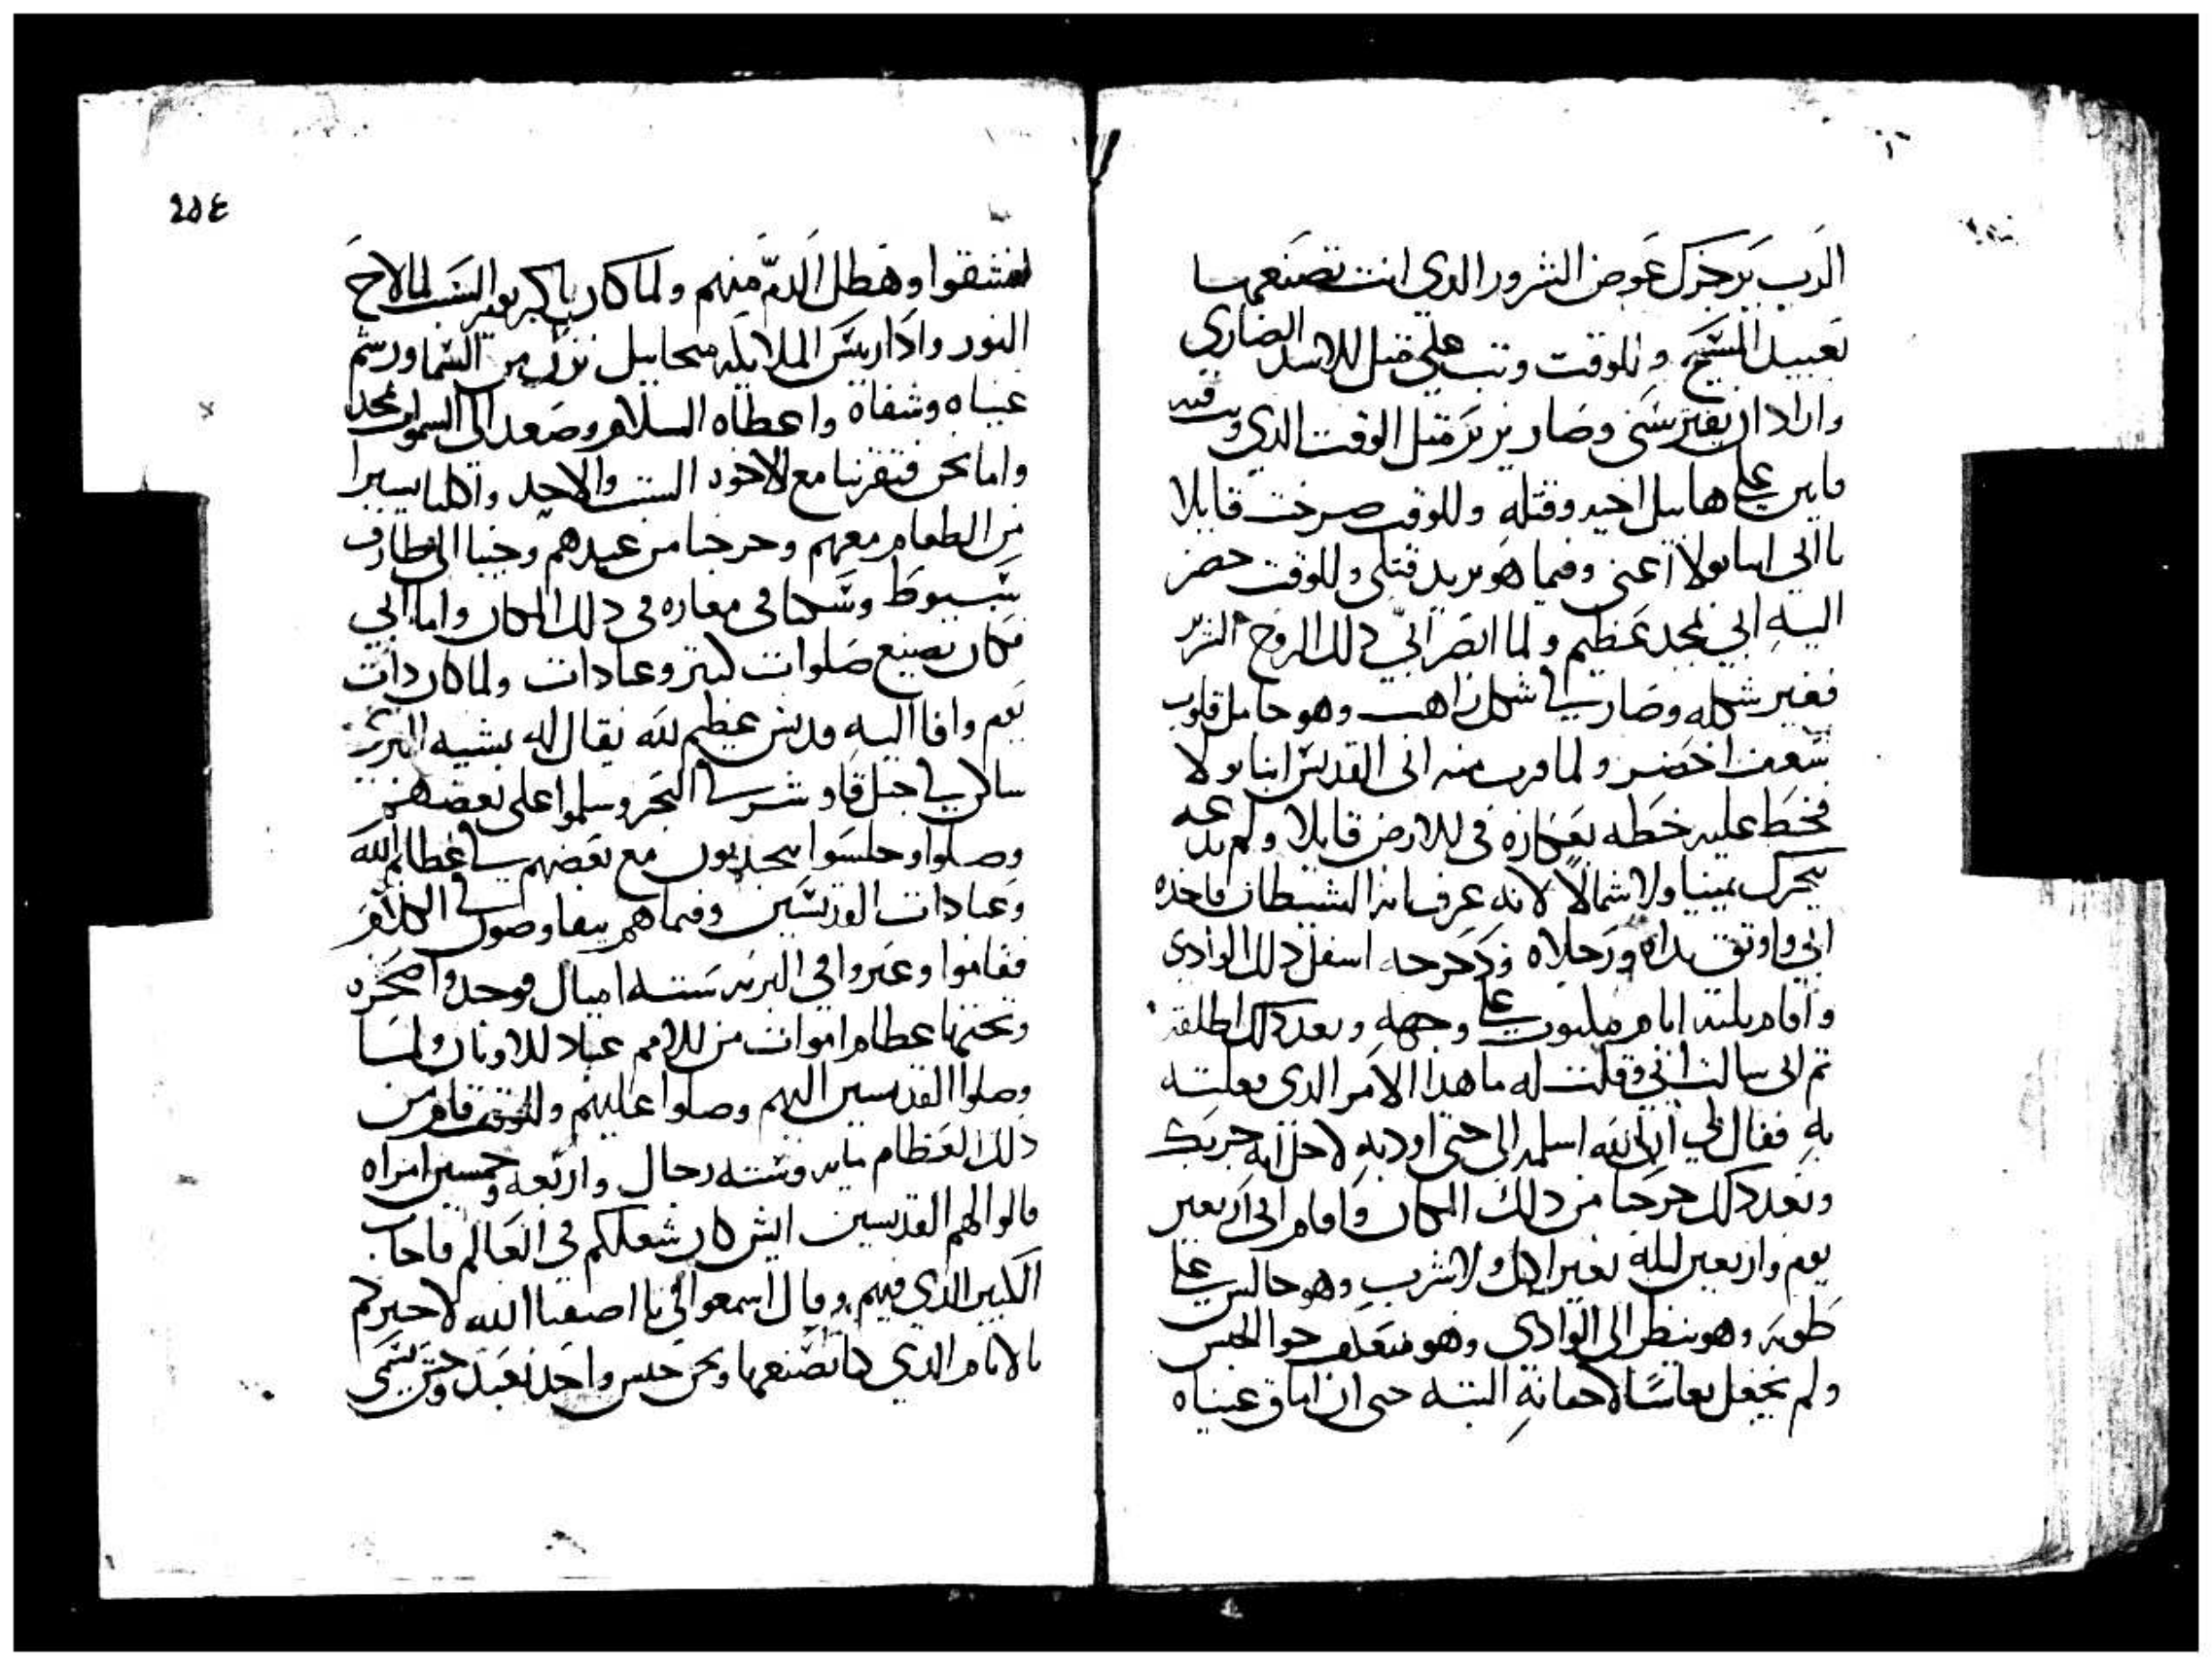 الرب يزجرك عوض الشرور الذي انت تصنعها
بعبيد المسيح وللوقت وتب علي مثل الاسد الضاري
واراد ان يفترسني وصار يزير مثل الوقت الذي وتب فيه
قاين على هابيل اخيه وقتله وللوقت صرخت قايلا
يا ابي انبا بولا اعني وفيما هو يريد قتلي وللوقت حضر
اليه ابي بمجد عظيم ولما ابصر ابي ذلك الروح الشرير
فغير شكله وصار في شكل راهب وهو حامل قلوب
سعف اخضر ولما قرب منه ابي القديس انبا بولا
فخط عليه خطه بعكازه في الارض قايلا ولم يدعه
يتحرك يمينا ولا شمالا لانه عرف بانه الشيطان فاخده
ابي واوثق يداه ورجلاه ودحرجه اسفل ذلك الوادي
واقام ثلثه ايام على وجهه وبعد ذلك اطلقه
ثم اني سالت ابي وقلت له ما هذا الامر الذي فعلته
به فقال لي ان الله اسلمه الي حتى اودبه لاجل انه جربك
وبعد ذلك خرجنا من ذلك المكان واقام ابي اربعين
يوم واربعين ليله بغير اكل ولا شرب وهو جالس على
طوبه وهو ينظر الى الوادي وهو
ولم يجعل نعاسا لاجفانه البته حتى ان اماق عيناه
٢٥٤
تشققوا وهطل الدم منهم ولما كان باكر يوم السبت لما لاح
النور واذا ريس الملايكه ميخاييل نزل من السما ورشم
عيناه وشفاه واعطاه السلام وصعد الى السموات بمجد
واما نحن فتقربنا مع الاخوه السبت والاحد واكلنا يسيرا
من الطعام معهم وخرجنا من عندهم وجينا الى
سيوط وسكنا في مغاره في ذلك المكان واما ابي
فكان يصنع صلوات كثيره وعبادات ولما كان ذات
يوم وافا اليه قديس عظيم لله يقال له بشيه
ساكن في جبل قاو شرقي البحر وسلموا على بعضهم
وصلوا وجلسوا يتحدثون مع بعضهم في عظايم الله
وعبادات القديسين وفيما هم يتفاوضون في الكلام
فقاموا وعبروا في البريه سته اميال فوجدوا صخره
وتحتها عظام اموات من الامم عباد الاوثان ولما
وصلوا القديسين اليهم وصلوا عليهم وللوقت قام من
ذلك العظام مايه وسته رجال واربعه وخمسين امراه
قالوا لهم القديسين ايش كان شغلكم في العالم فاجاب
الكبير الذي فيهم وقال اسمعوا الي يا اصفيا الله لاخبركم
بالاثام الذي كنا نصنعها ونحن جنس واحد نعبد وحتى يسمى